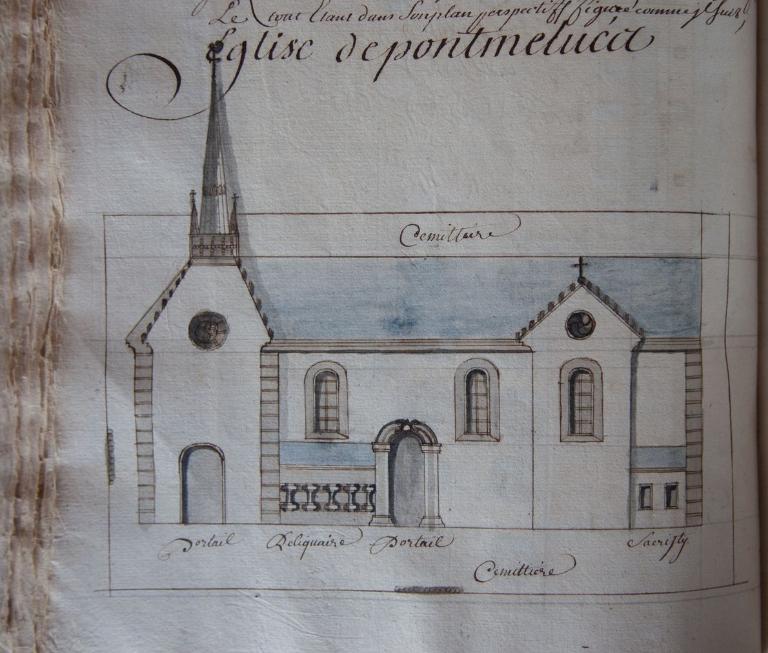 Le tout Etant dans Son plan perspectif figuré comme jl Suit,
Eglise de pontmeluait
Cemittaire
Portail Reliquaire Portail Sacristy
Cemittiere